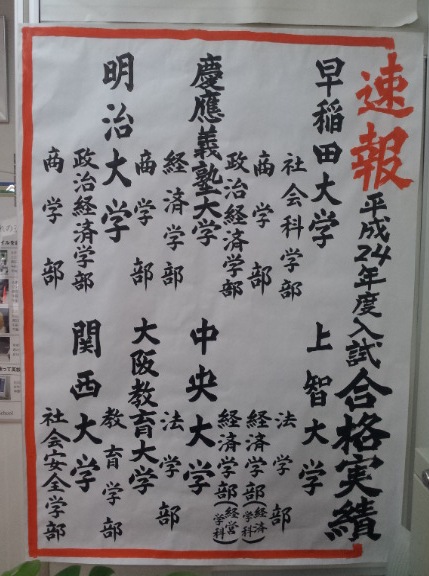 速報 平成24年度入試合格実績
早稲田大学
社会科学部
商学部
政治経済学部
慶應義塾大学
経済学部
商学部
明治大学
政治経済学部
商学部
上智大学
法学部
経済学部(経済学科)
経済学部(経営学科)
中央大学
法学部
大阪教育大学
教育学部
関西大学
社会安全学部